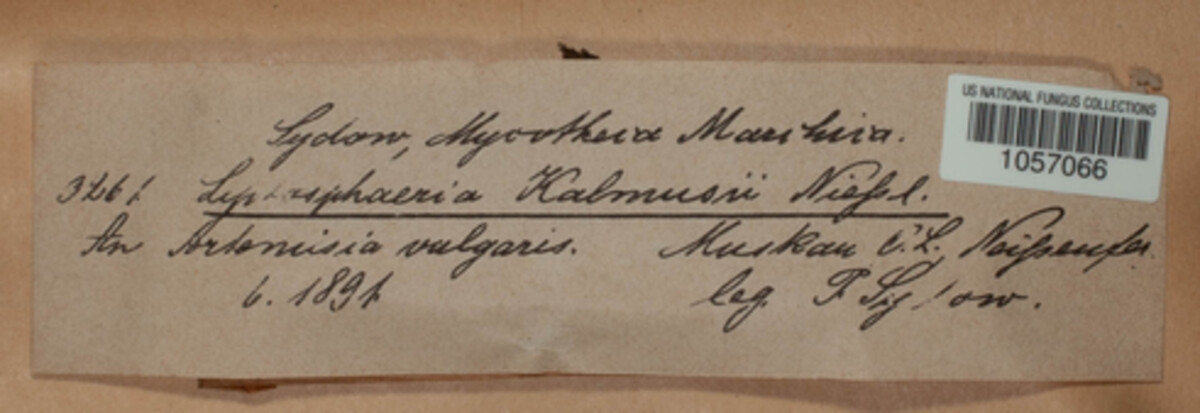 Sydow, Mycotheca Marchica.
US NATIONAL FUNGUS COLLECTIONS
1057066
3261. Leptosphaeria Kalmusii Niessl.
An Artemisia vulgaris. Muskau O. L.
6. 1891 leg. P. Sydow.